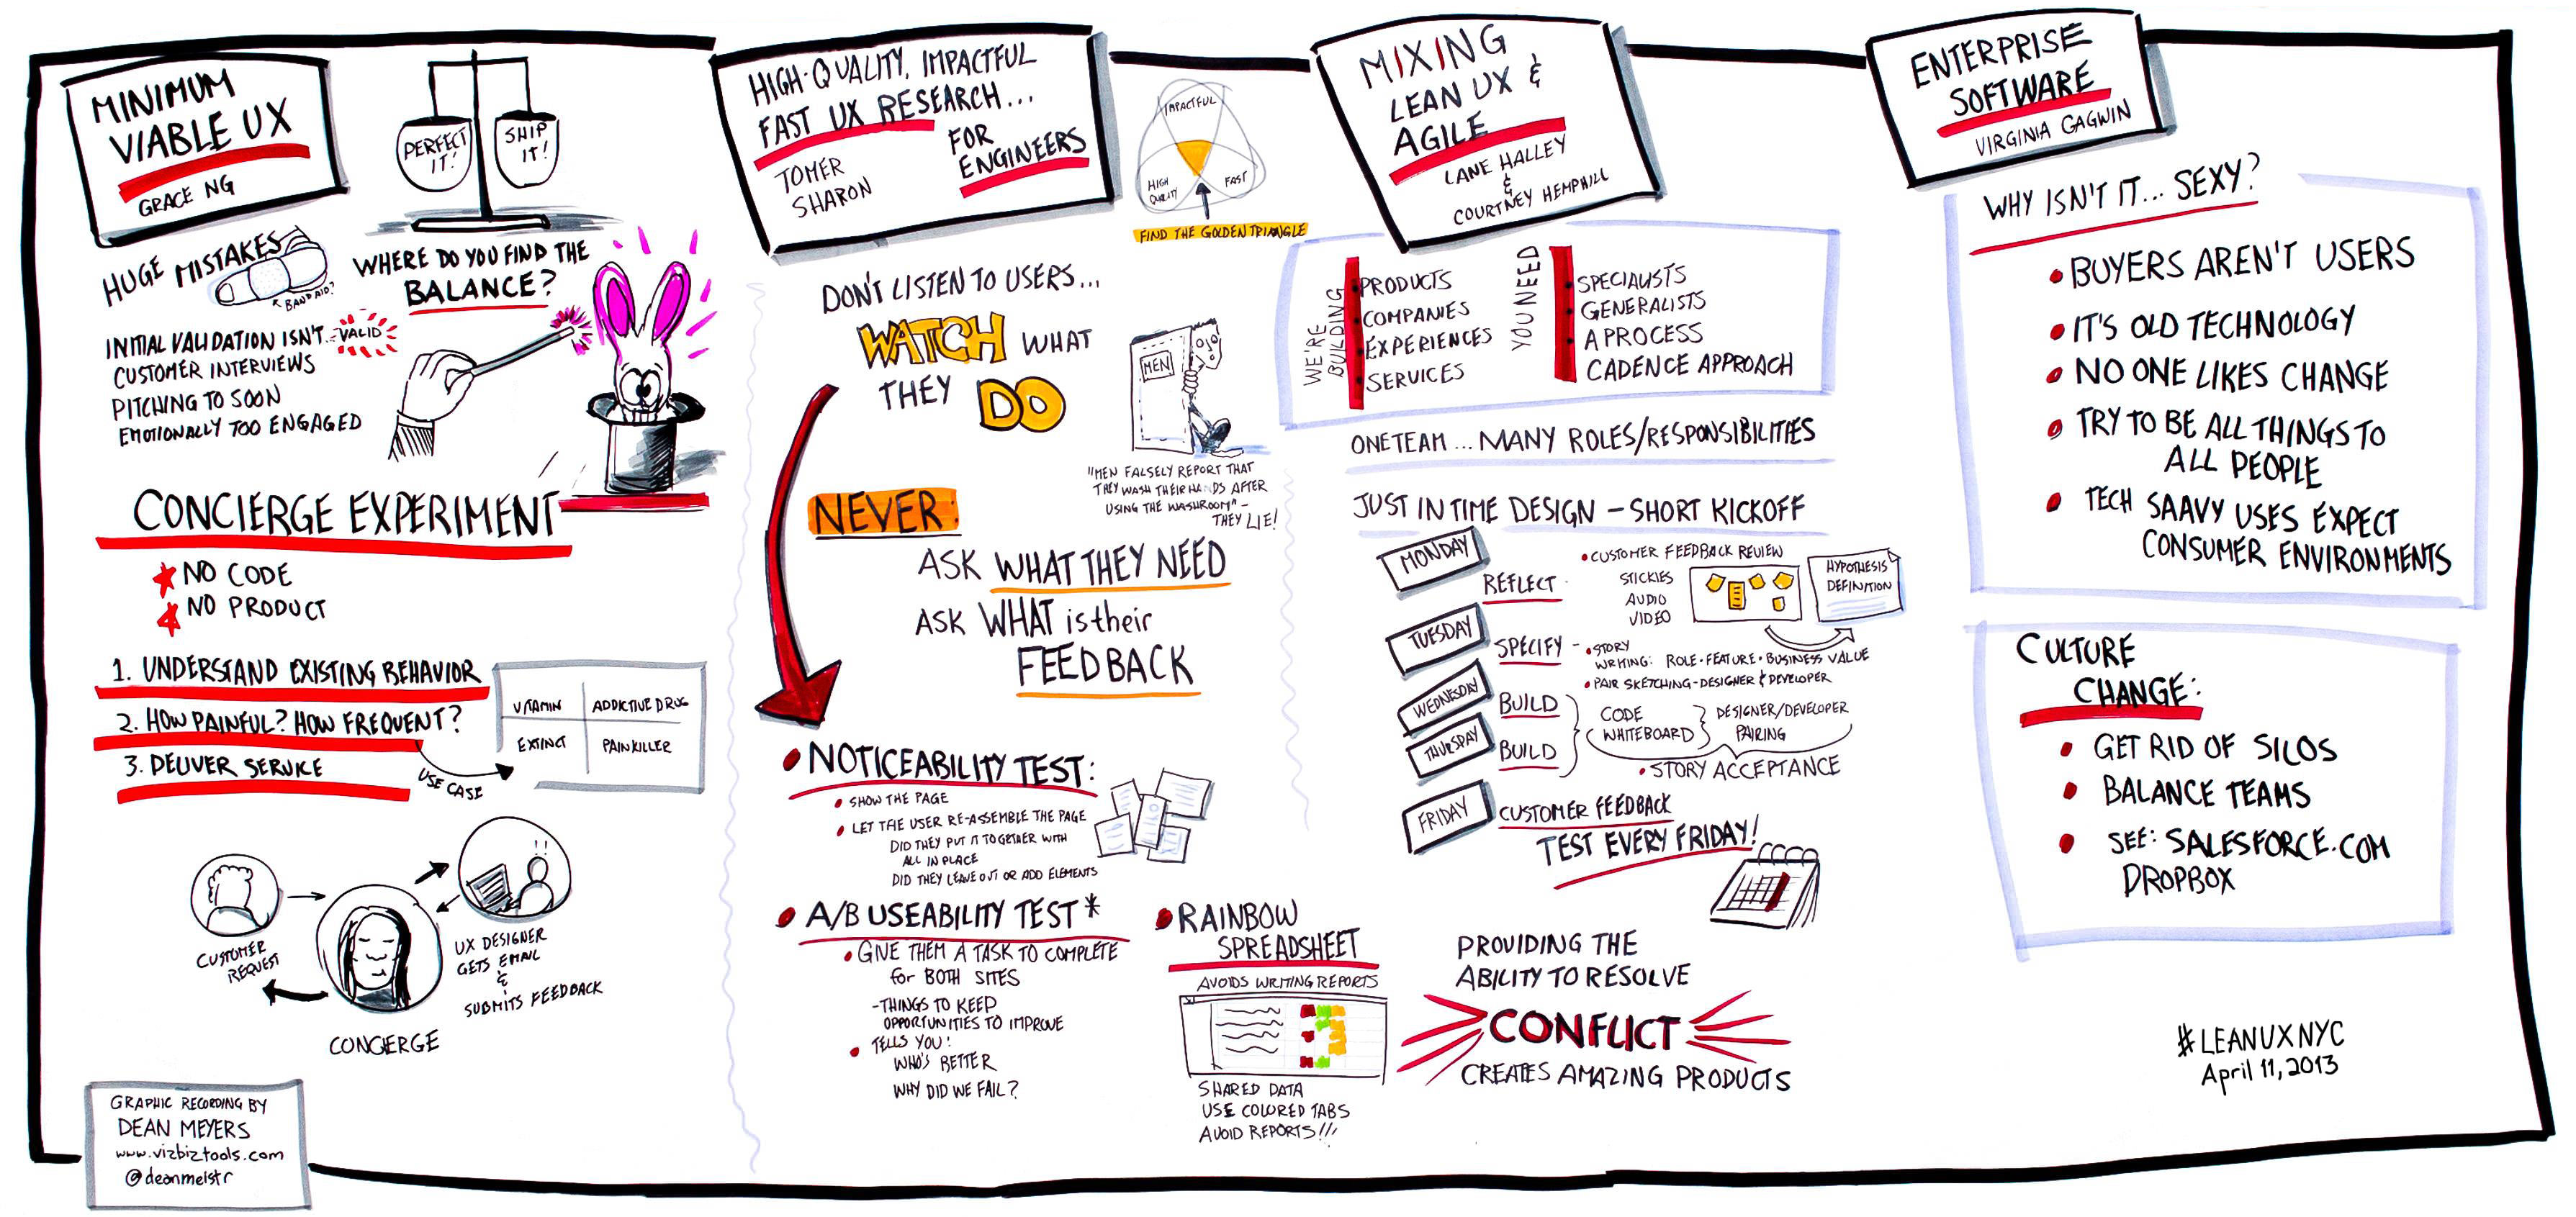 MINIMUM
VIABLE UX
GRACE NG
PERFECT
IT!
SHIP
IT!
HUGE MISTAKES
BANDAID?
WHERE DO YOU FIND THE
BALANCE?
INITIAL VALIDATION ISN'T... VALID
CUSTOMER INTERVIEWS
PITCHING TO SOON
EMOTIONALLY TOO ENGAGED
CONCIERGE EXPERIMENT
NO CODE
NO PRODUCT
1. UNDERSTAND EXISTING BEHAVIOR
2. HOW PAINFUL? HOW FREQUENT?
3. DELIVER SERVICE
USE CASE
VITAMIN
ADDICTIVE DRUG
EXTINCT
PAINKILLER
CUSTOMER
REQUEST
UX DESIGNER
GETS EMAIL
&
SUBMITS FEEDBACK
CONCIERGE
GRAPHIC RECORDING BY
DEAN MEYERS
www.vizbiztools.com
@deanmeistr
HIGH-QUALITY, IMPACTFUL
FAST UX RESEARCH...
FOR
ENGINEERS
TOMER
SHARON
IMPACTFUL
HIGH
QUALITY
FAST
FIND THE GOLDEN TRIANGLE
DON'T LISTEN TO USERS...
WATCH WHAT
THEY DO
MEN
"MEN FALSELY REPORT THAT
THEY WASH THEIR HANDS AFTER
USING THE WASHROOM" -
THEY LIE!
NEVER:
ASK WHAT THEY NEED
ASK WHAT is their
FEEDBACK
• NOTICEABILITY TEST:
• SHOW THE PAGE
• LET THE USER RE-ASSEMBLE THE PAGE
DID THEY PUT IT TOGETHER WITH
ALL IN PLACE
DID THEY LEAVE OUT OR ADD ELEMENTS
• A/B USEABILITY TEST *
• GIVE THEM A TASK TO COMPLETE
for BOTH SITES
- THINGS TO KEEP
OPPORTUNITIES TO IMPROVE
• TELLS YOU:
WHO'S BETTER
WHY DID WE FAIL?
• RAINBOW
SPREADSHEET
AVOIDS WRITING REPORTS
SHARED DATA
USE COLORED TABS
AVOID REPORTS!!!
MIXING
LEAN UX &
AGILE
LANE HALLEY
&
COURTNEY HEMPHILL
WE'RE
BUILDING
• PRODUCTS
• COMPANIES
• EXPERIENCES
• SERVICES
YOU NEED
• SPECIALISTS
• GENERALISTS
• A PROCESS
CADENCE APPROACH
ONE TEAM... MANY ROLES/RESPONSIBILITIES
JUST IN TIME DESIGN - SHORT KICKOFF
MONDAY
REFLECT
• CUSTOMER FEEDBACK REVIEW
STICKIES
AUDIO
VIDEO
HYPOTHESIS
DEFINITION
TUESDAY
SPECIFY -
• STORY
WRITING: ROLE • FEATURE • BUSINESS VALUE
• PAIR SKETCHING - DESIGNER & DEVELOPER
WEDNESDAY
BUILD
THURSDAY
BUILD
CODE
WHITEBOARD
DESIGNER/DEVELOPER
PAIRING
• STORY ACCEPTANCE
FRIDAY
CUSTOMER FEEDBACK
TEST EVERY FRIDAY!
PROVIDING THE
ABILITY TO RESOLVE
CONFLICT
CREATES AMAZING PRODUCTS
ENTERPRISE
SOFTWARE
VIRGINIA GAGWIN
WHY ISN'T IT... SEXY?
• BUYERS AREN'T USERS
• IT'S OLD TECHNOLOGY
• NO ONE LIKES CHANGE
• TRY TO BE ALL THINGS TO
ALL PEOPLE
• TECH SAAVY USES EXPECT
CONSUMER ENVIRONMENTS
CULTURE
CHANGE:
• GET RID OF SILOS
• BALANCE TEAMS
• SEE: SALESFORCE.COM
DROPBOX
#LEANUXNYC
April 11, 2013